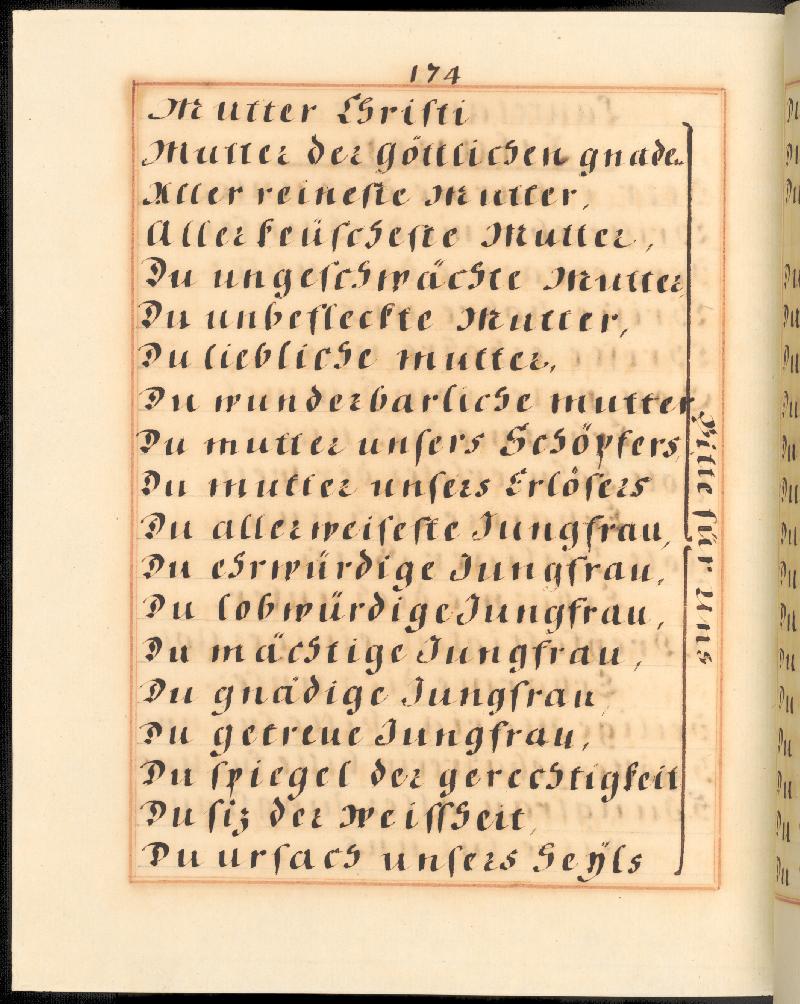 174
Mutter Christi
Mutter der göttlichen gnade.
Aller reineste Mutter,
Allerkeüscheste Mutter,
Du ungeschwächte Mutter
Du unbefleckte Mutter,
Du liebliche mutter,
Du wunderbarliche mutter
Du mutter unsers Schöpfers
Du mutter unsers Erlösers
Du allerweiseste Jungfrau,
Du ehrwürdige Jungfrau,
Du lobwürdige Jungfrau,
Du mächtige Jungfrau,
Du gnädige Jungfrau
Du getreue Jungfrau,
Du spiegel der gerechtigkeit
Du siz der Weissheit,
Du ursach unsers heÿls
Bitte für uns